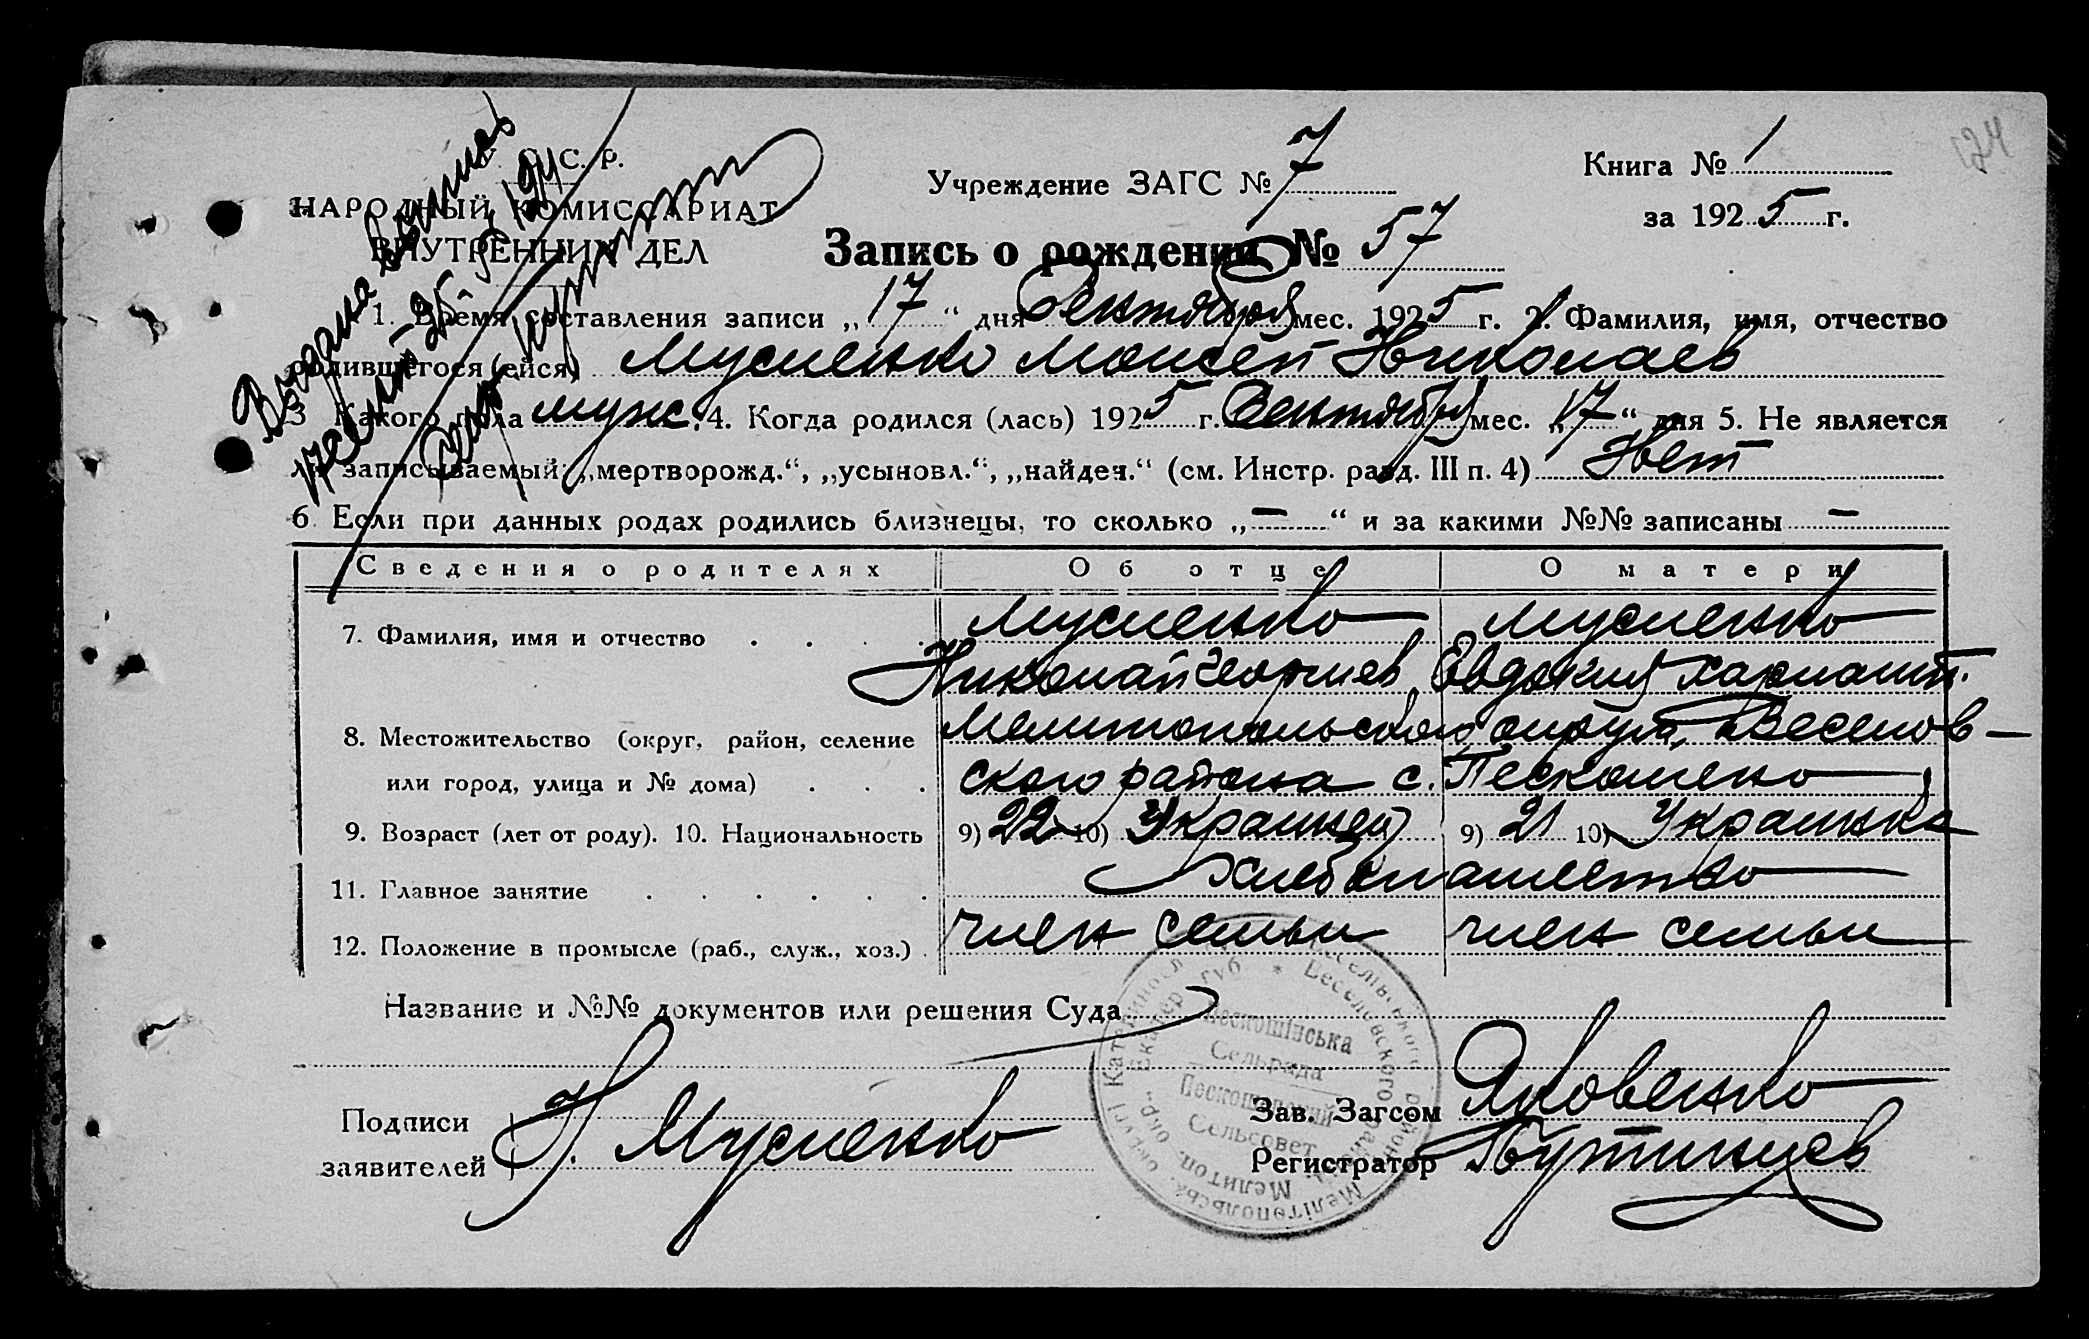 У. С. С. Р.
НАРОДНЫЙ КОМИССАРИАТ
ВНУТРЕННИХ ДЕЛ
Выдана выпись
Учреждение ЗАГС № 7
Книга № 1
за 1925 г.
124
Запись о рождении № 57
1. Время составления записи „17“ дня Сентября мес. 1925 г. 2. Фамилия, имя, отчество
родившегося (ейся) Мусиенко Моисей Николаев
3 Какого пола муж. 4. Когда родился (лась) 1925 г. Сентября мес. „17“ дня 5. Не является
ли записываемый: „мертворожд.“, „усыновл.“, „найден.“ (см. Инстр. разд. III п. 4) Нет
6. Если при данных родах родились близнецы, то сколько „—“ и за какими №№ записаны —
Сведения о родителях Об отце О матери
7. Фамилия, имя и отчество . . . . Мусиенко Мусиенко
Николай Георгиев Евдокия Харлампи.
8. Местожительство (округ, район, селение Мелитопольского округа, Веселов-
или город, улица и № дома) . . . ского района с. Пескошено
9. Возраст (лет от роду). 10. Национальность 9) 22 10) Украинец 9) 21 10) Украинка
11. Главное занятие . . . . . . Хлебопашество
12. Положение в промысле (раб., служ., хоз.) . член семьи член семьи
Название и №№ документов или решения Суда
Пескошінська
Сельрада
Пескошинский
Сельсовет
Подписи
заявителей
Н. Мусиенко
Зав. Загсом Яковенко
Регистратор